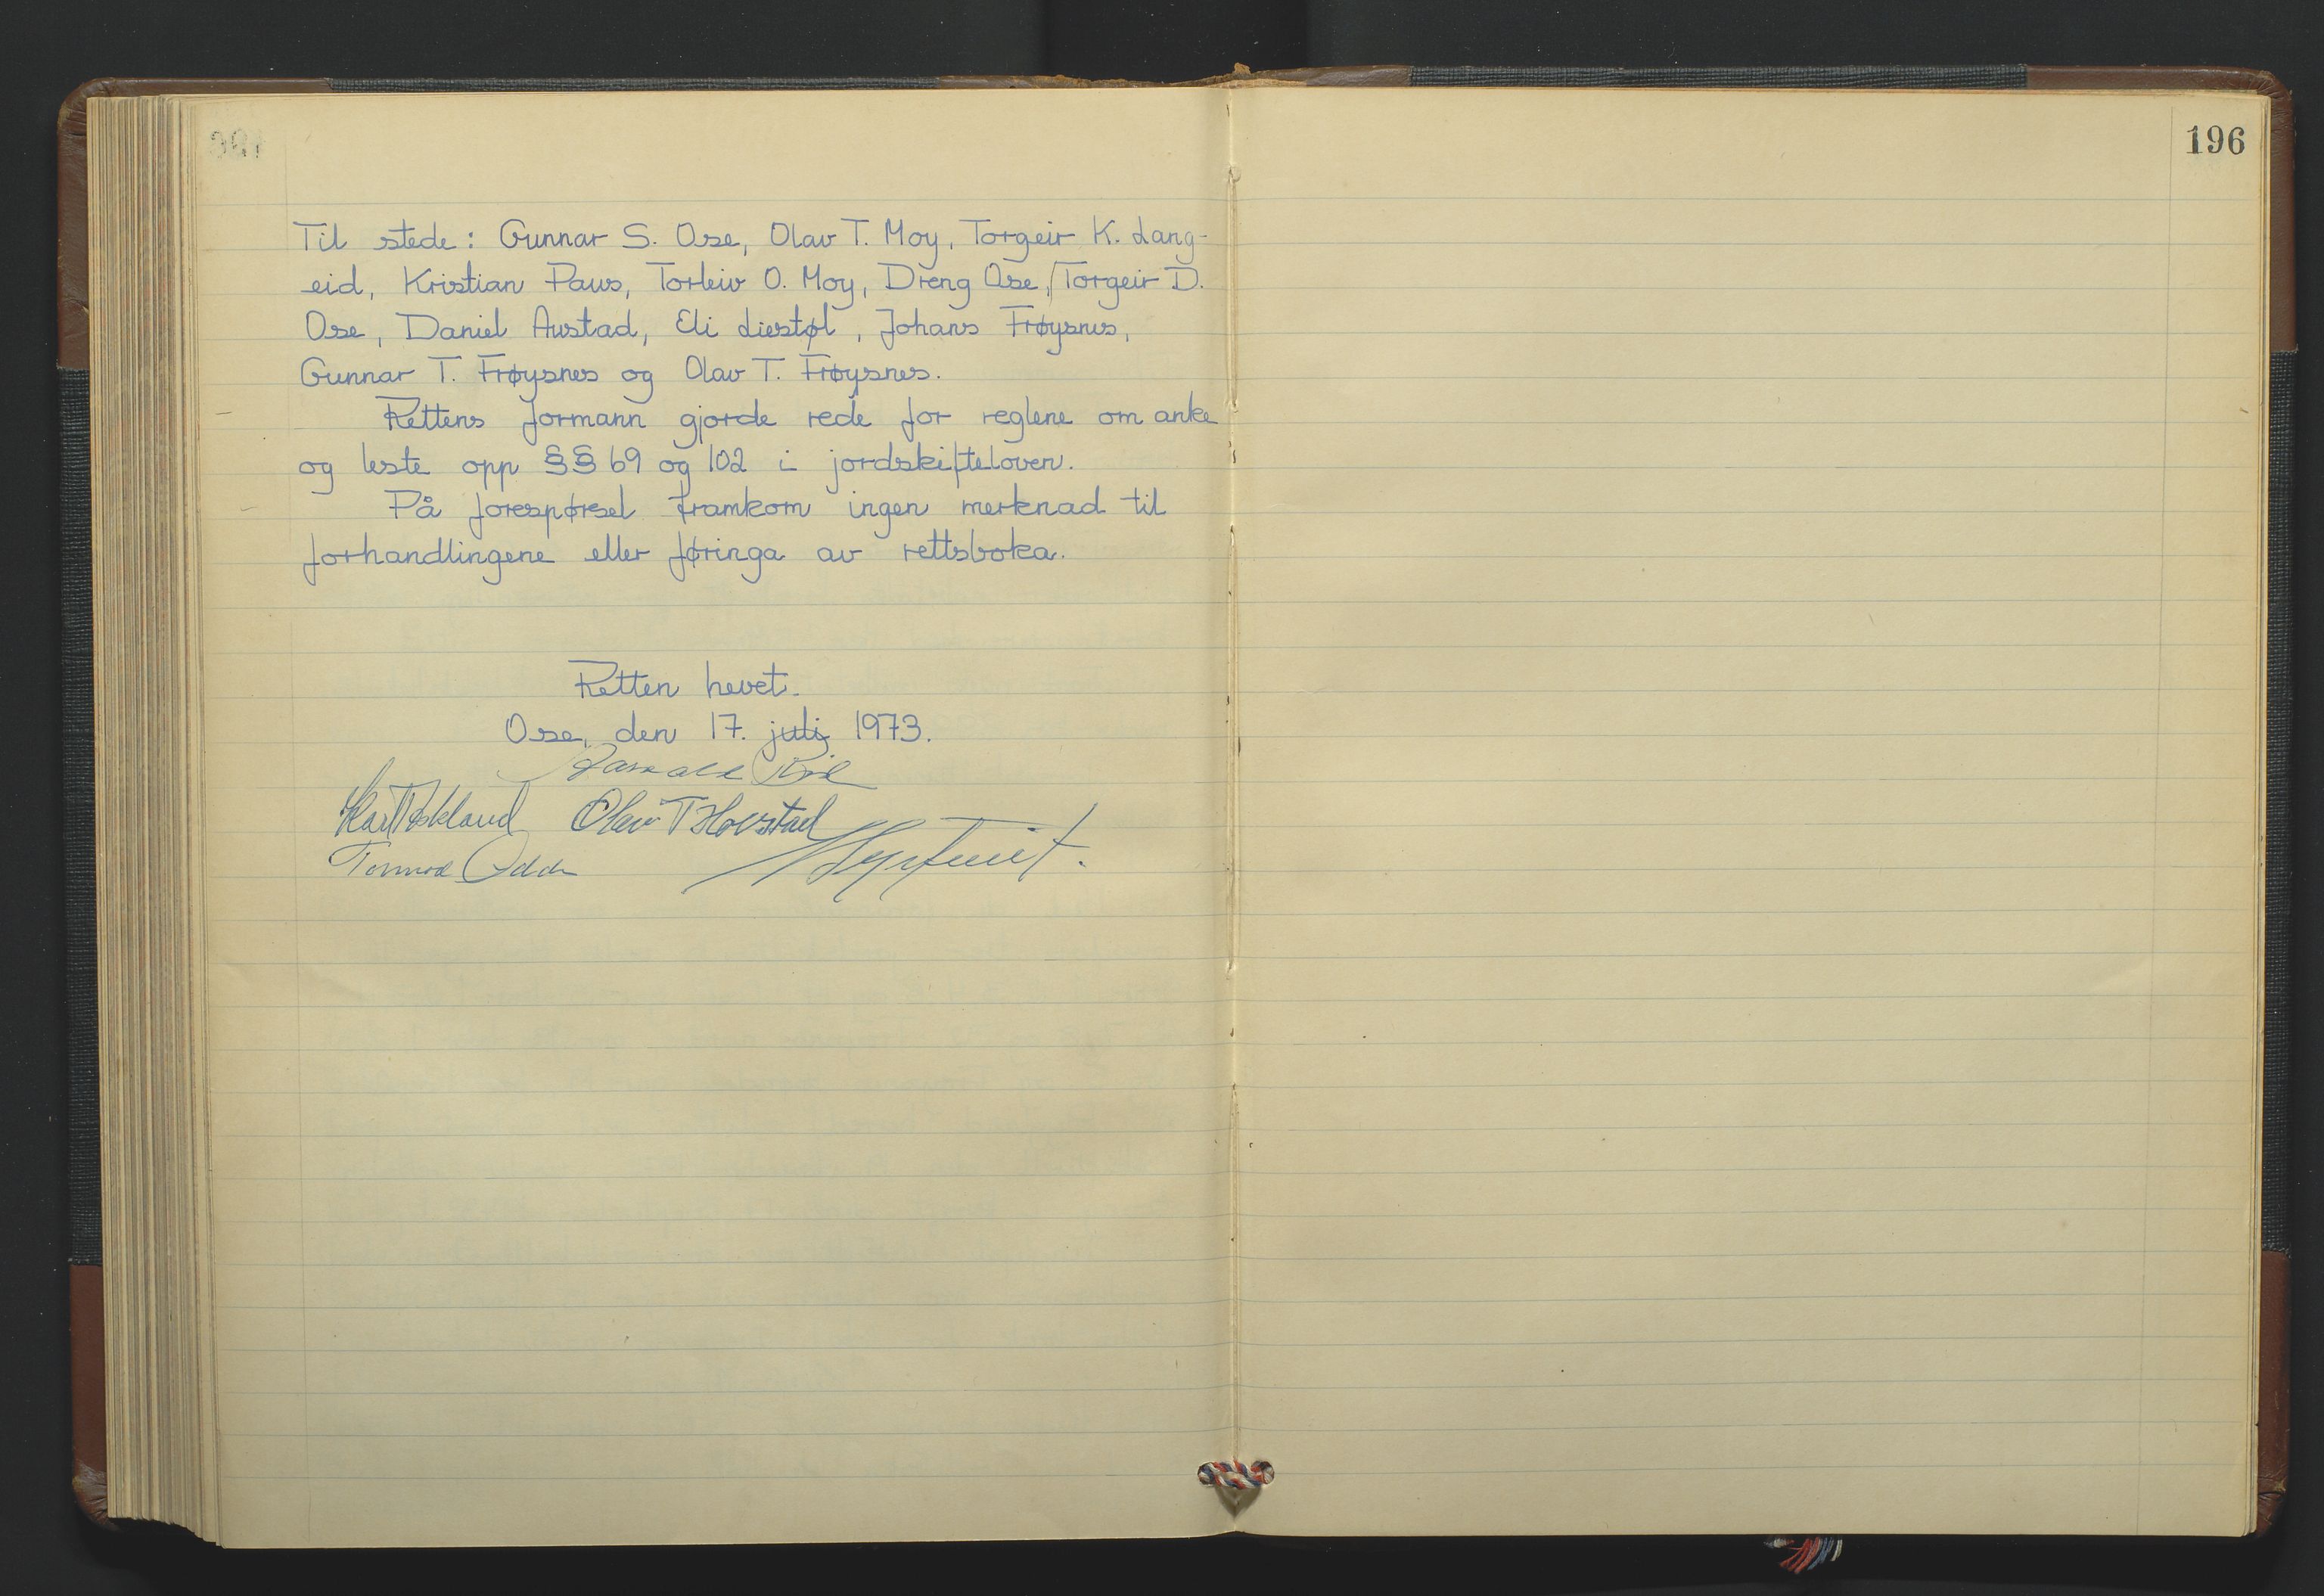 Til stede: Gunnar S. Ose, Olav T. Moy, Torgeir K. Lang-
eid, Kristian Paus, Torleiv O. Moy, Dreng Ose, Torgeir D.
Ose, Daniel Austad, Eli Liestøl, Johans Frøysnes,
Gunnar T. Frøysnes og Olav T. Frøysnes.
Rettens formann gjorde rede for reglene om anke
og leste opp §§ 69 og 102 i jordskifteloven.
På forespørsel framkom ingen merknad til
forhandlingene eller føringa av rettsboka.
Retten hevet.
Ose, den 17. juli 1973.
Olav T Hovstad
Tormod
196